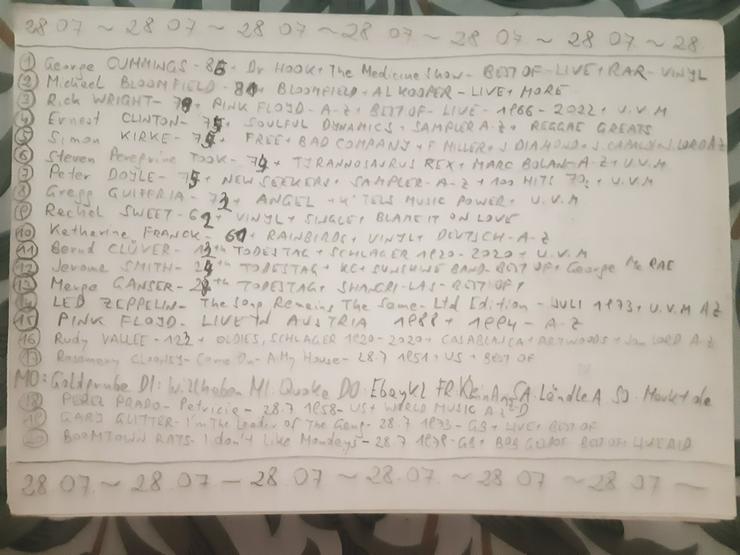 28 07 ~ 28 07 ~ 28 07 ~ 28 07 ~ 28 07 ~ 28 07 ~ 28
① George CUMMINGS - 86 + Dr HOOK + The Medicine Show - BEST OF - LIVE + RAR - VINYL
② Michael BLOOMFIELD - + BLOOMFIELD + AL KOOPER - LIVE + MORE
③ Rick WRIGHT - + PINK FLOYD - A-Z + BEST OF - LIVE - 1966 - 2022 + U.V.M
④ Ernest CLINTON - + SOULFUL DYNAMICS + SAMPLER A-Z + REGGAE GREATS
⑤ Simon KIRKE - + FREE + BAD COMPANY + F MILLER + S DIAMOND + S. LORD AZ
⑥ Steven Peregrine TOOK - + TYRANNOSAURUS REX + MARC BOLAN - A-Z + U.V.M
⑦ Peter DOYLE - + NEW SEEKERS + SAMPLER - A-Z + 100 HITS + U.V.M
⑧ Gregg GUIFFRIA - + ANGEL + K'TELS MUSIC POWER + U.V.M
⑨ Rachel SWEET - 62 + VINYL + SINGLE + BLAME IT ON LOVE
⑩ Katharina FRANCK - + RAINBIRDS + VINYL + DEUTSCH - A-Z
⑪ Bernd CLÜVER - TODESTAG + SCHLAGER 1920 - 2020 + U.V.M
⑫ Jerome SMITH - TODESTAG + KC + SUNSHINE BAND - BEST OF + George Mc RAE
⑬ Marge GANSER - TODESTAG + SHANGRI-LAS - BEST OF
⑭ LED ZEPPELIN - The Song Remains The Same - Ltd Edition - JULI 1973 + U.V.M AZ
⑮ PINK FLOYD - LIVE IN AUSTRIA 1988 + 1994 - A-Z
16 Rudy VALLEE - + OLDIES, SCHLAGER 1920 - 2020 + CASABLANCA + ARTWOODS + Jon LORD A-Z
⑰ Rosemary CLOONEY - Come On-A My House - 28.7 1951 + US + BEST OF
MO: Goldgrube DI: Willhaben MI: Quoka DO: Ebay KL FR: SA: Ländle A SO: Markt de
⑱ PEREZ PRADO - Patricia - 28.7 1958 - US + WORLD MUSIC
⑲ GARY GLITTER - I'm The Leader Of The Gang - 28.7 1973 - GB + LIVE + BEST OF
⑳ BOOMTOWN RATS - I don't Like Mondays - 28.7 1979 - GB + BOB GELDOF BEST OF + LIVE AID
28 07 ~ 28 07 - 28 07 ~ 28 07 ~ 28 07 ~ 28 07 ~ 28 07 ~